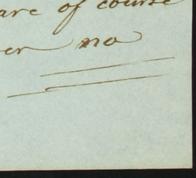 are of course
er no